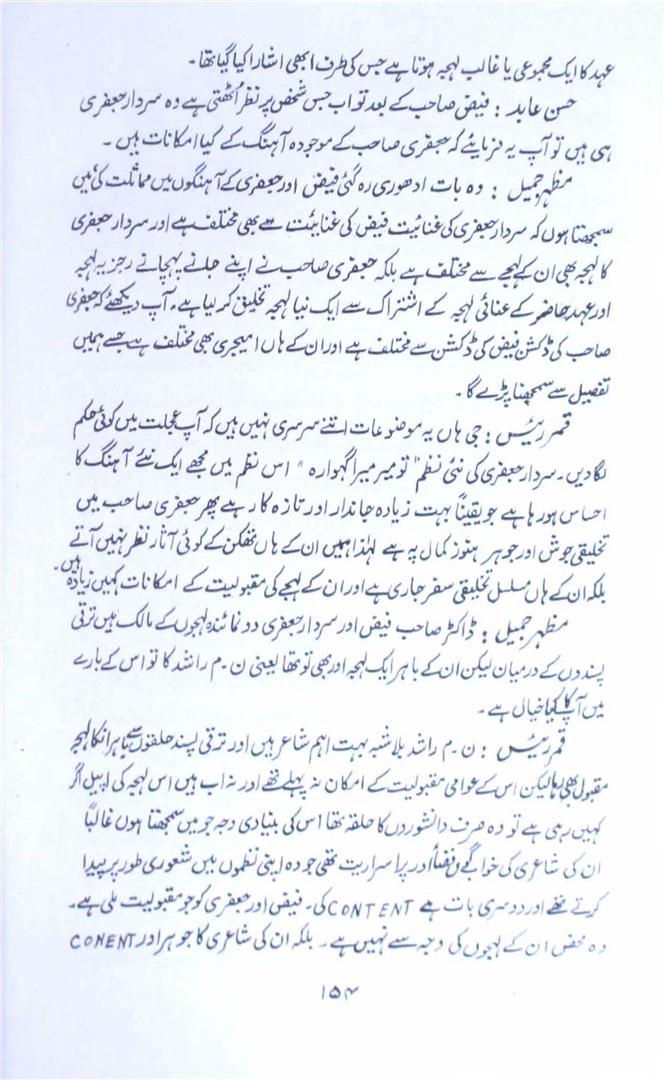 عہد کا ایک مجموعی یا غالب لہجہ ہوتا ہے جس کی طرف ابھی اشارا کیا گیا تھا۔
حسن عابد : فیض صاحب کے بعد تو اب جس شخص پر نظر اُٹھتی ہے وہ سردار جعفری
ہی ہیں تو آپ یہ فرمایئے کہ جعفری صاحب کے موجودہ آہنگ کے کیا امکانات ہیں ۔
مظہر جمیل : وہ بات ادھوری رہ گئی فیض اور جعفری کے آہنگوں میں مماثلت کی میں
سمجھتا ہوں کہ سردار جعفری کی غنائیت فیض کی غنائیت سے بھی مختلف ہے اور سردار جعفری
کا لہجہ بھی ان کے لہجے سے مختلف ہے بلکہ جعفری صاحب نے اپنے جانے پہچانے رجزیہ لہجہ
اور عہد حاضر کے غنائی لہجہ کے اشتراک سے ایک نیا لہجہ تخلیق کر لیا ہے۔ آپ دیکھئے کہ جعفری
صاحب کی ڈکشن فیض کی ڈکشن سے مختلف ہے اور ان کے ہاں امیجری بھی مختلف ہے جسے ہمیں
تفصیل سے سمجھنا پڑے گا۔
قمر رئیس : جی ہاں یہ موضوعات اتنے سرسری نہیں ہیں کہ آپ عجلت میں کوئی حکم
لگادیں۔ سردار جعفری کی نئی نظم " تو میر میرا گہوارہ " اس نظم میں مجھے ایک نئے آہنگ کا
احساس ہو رہا ہے جو یقیناً بہت زیادہ جاندار اور تازہ کار ہے پھر جعفری صاحب میں
تخلیقی جوش اور جوہر ہنوز کمال پہ ہے لہٰذا ہمیں ان کے ہاں تھکن کے کوئی آثار نظر نہیں آتے
بلکہ ان کے ہاں مسلسل تخلیقی سفر جاری ہے اور ان کے لہجے کی مقبولیت کے امکانات کہیں زیادہ ہیں۔
مظہر جمیل : ڈاکٹر صاحب فیض اور سردار جعفری دو نمائندہ لہجوں کے مالک ہیں ترقی
پسندوں کے درمیان لیکن ان کے باہر ایک لہجہ اور بھی تو تھا یعنی ن۔م راشد کا تو اس کے بارے
میں آپ کا کیا خیال ہے۔
قمر رئیس : ن۔م راشد بلاشبہ بہت اہم شاعر ہیں اور ترقی پسند حلقوں سے باہر انکا لہجہ
مقبول بھی رہا لیکن اس کے عوامی مقبولیت کے امکان نہ پہلے تھے اور نہ اب ہیں اس لہجہ کی اپیل اگر
کہیں رہی ہے تو وہ صرف دانشوروں کا حلقہ تھا اس کی بنیادی وجہ جو میں سمجھتا ہوں غالباً
ان کی شاعری کی خوابگوں فضا اور پراسراریت تھی جو وہ اپنی نظموں میں شعوری طور پر پیدا
کرتے تھے اور دوسری بات ہے CONTENT کی۔ فیض اور جعفری کو جو مقبولیت ملی ہے۔
وہ محض ان کے لہجوں کی وجہ سے نہیں ہے ۔ بلکہ ان کی شاعری کا جوہر اور CONENT
۱۵۴